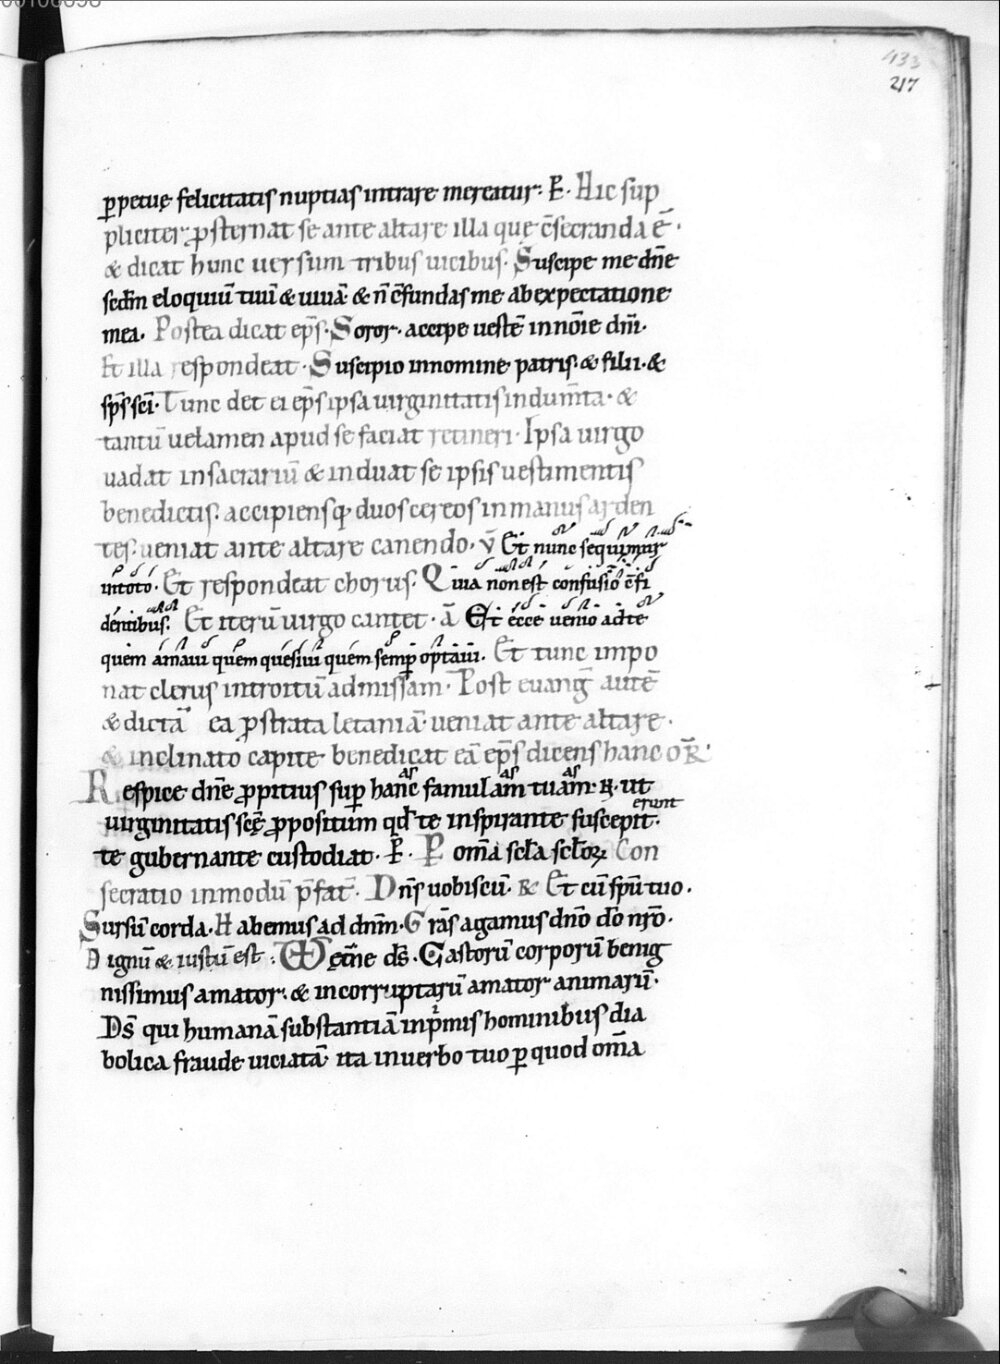 00106698
433
217
ꝑpetuę felicitatis nuptias intrare mereatur. Hic sup
pliciter ꝓsternat se ante altare illa quę c̄secranda ē.
& dicat hunc uersum tribus uicibus. Suscipe me dn̄e
scdm̄ eloquiū tuū & uiuā. & n̄ c̄fundas me ab expectatione
mea. Postea dicat ep̄s. Soror. accipe uestē in nōie dn̄i.
Et illa respondeat. Suscipio in nomine patris. & filii. &
sp̄s sc̄i. Tunc det ei ep̄s ipsa uirginitatis indum̄ta. &
tantū uelamen apud se faciat retineri. Ipsa uirgo
uadat in sacrariū & induat se ipsis uestimentis
benedictis. accipiensq; duos cereos in manus arden
tes. ueniat ante altare canendo. v̄ Et nunc sequimur
intoto. Et respondeat chorus. Quia non est confusio c̄fi
dentibus. Et iterū uirgo cantet. ā Et ecce uenio ad te
quem amaui quem quesiui quem semꝑ optaui. Et tunc impo
nat clerus introitū ad missam. Post euang̅ autē
& dictā ea ꝓstrata letaniā. ueniat ante altare.
& inclinato capite benedicat eā ep̄s dicens hanc or̄.
Respice dn̄e ꝓpitius suꝑ hanc as famulam as tuam as. ut
uirginitatis sc̄ę ꝓpositum qd̄ te inspirante suscepit. erunt
te gubernante custodiat. P̲. om̄a scl̄a scl̄oꝝ Con
secratio in modū p̄fat̄. Dn̄s uobiscū. R̲ Et cū sp̄u tuo.
Sursū corda. Habemus ad dn̄m. Gr̄as agamus dn̄o dō nr̄o.
Dignū & iustū est. ęt̄ne ds̄. Castorū corporū benig
nissimus amator. & incorruptarū amator animarū.
Ds̄ qui humanā substantiā in pͥmis hominibus dia
bolica fraude uiciatā ita in uerbo tuo ꝑ quod om̄a